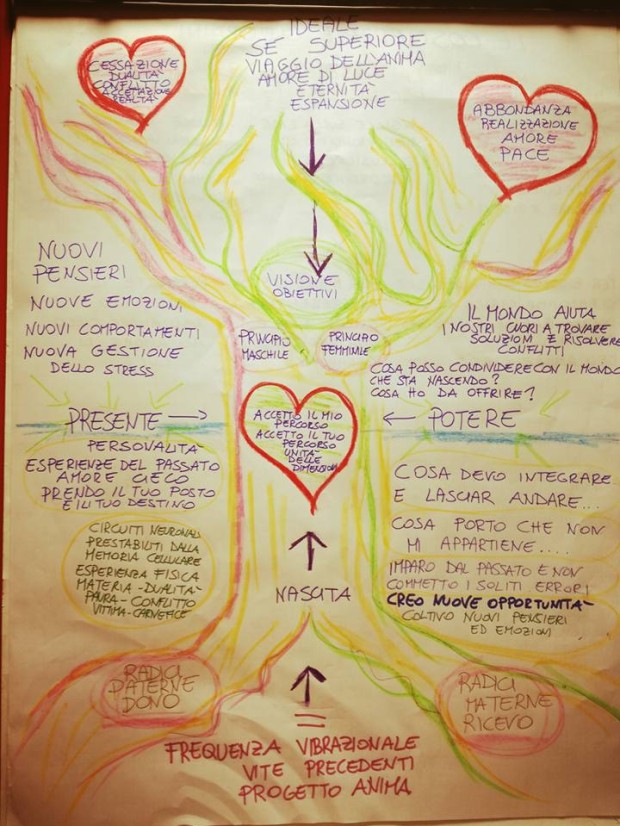 IDEALE
SÉ SUPERIORE
VIAGGIO DELL'ANIMA
AMORE DI LUCE
ETERNITÀ
ESPANSIONE
CESSAZIONE
DUALITÀ
CONFLITTO
ACCETTAZIONE
REALTÀ
ABBONDANZA
REALIZZAZIONE
AMORE
PACE
VISIONE
OBIETTIVI
NUOVI
PENSIERI
NUOVE EMOZIONI
NUOVI COMPORTAMENTI
NUOVA GESTIONE
DELLO STRESS
PRINCIPIO
MASCHILE
PRINCIPIO
FEMMINILE
IL MONDO AIUTA
I NOSTRI CUORI A TROVARE
SOLUZIONI E RISOLVERE
CONFLITTI
COSA POSSO CONDIVIDERE CON IL MONDO
CHE STA NASCENDO?
COSA HO DA OFFRIRE?
PRESENTE
ACCETTO IL MIO
PERCORSO
ACCETTO IL TUO
PERCORSO
UNITÀ
DELLE
DIMENSIONI
POTERE
PERSONALITÀ
ESPERIENZE DEL PASSATO
AMORE CIECO
PRENDO IL TUO POSTO
E IL TUO DESTINO
CIRCUITI NEURONALI
PRESTABILITI DALLA
MEMORIA CELLULARE
ESPERIENZA FISICA
MATERIA - DUALITÀ
PAURA - CONFLITTO
VITTIMA - CARNEFICE
COSA DEVO INTEGRARE
E LASCIAR ANDARE...
COSA PORTO CHE NON
MI APPARTIENE....
IMPARO DAL PASSATO E NON
COMMETTO I SOLITI ERRORI
CREO NUOVE OPPORTUNITÀ
COLTIVO NUOVI PENSIERI
ED EMOZIONI
NASCITA
RADICI
PATERNE
DONO
RADICI
MATERNE
RICEVO
=
FREQUENZA VIBRAZIONALE
VITE PRECEDENTI
PROGETTO ANIMA